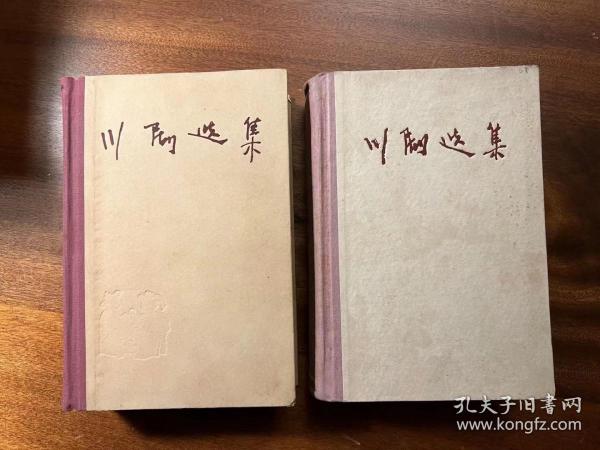 川剧选集
川剧选集
孔夫子旧书网
www.kongfz.com